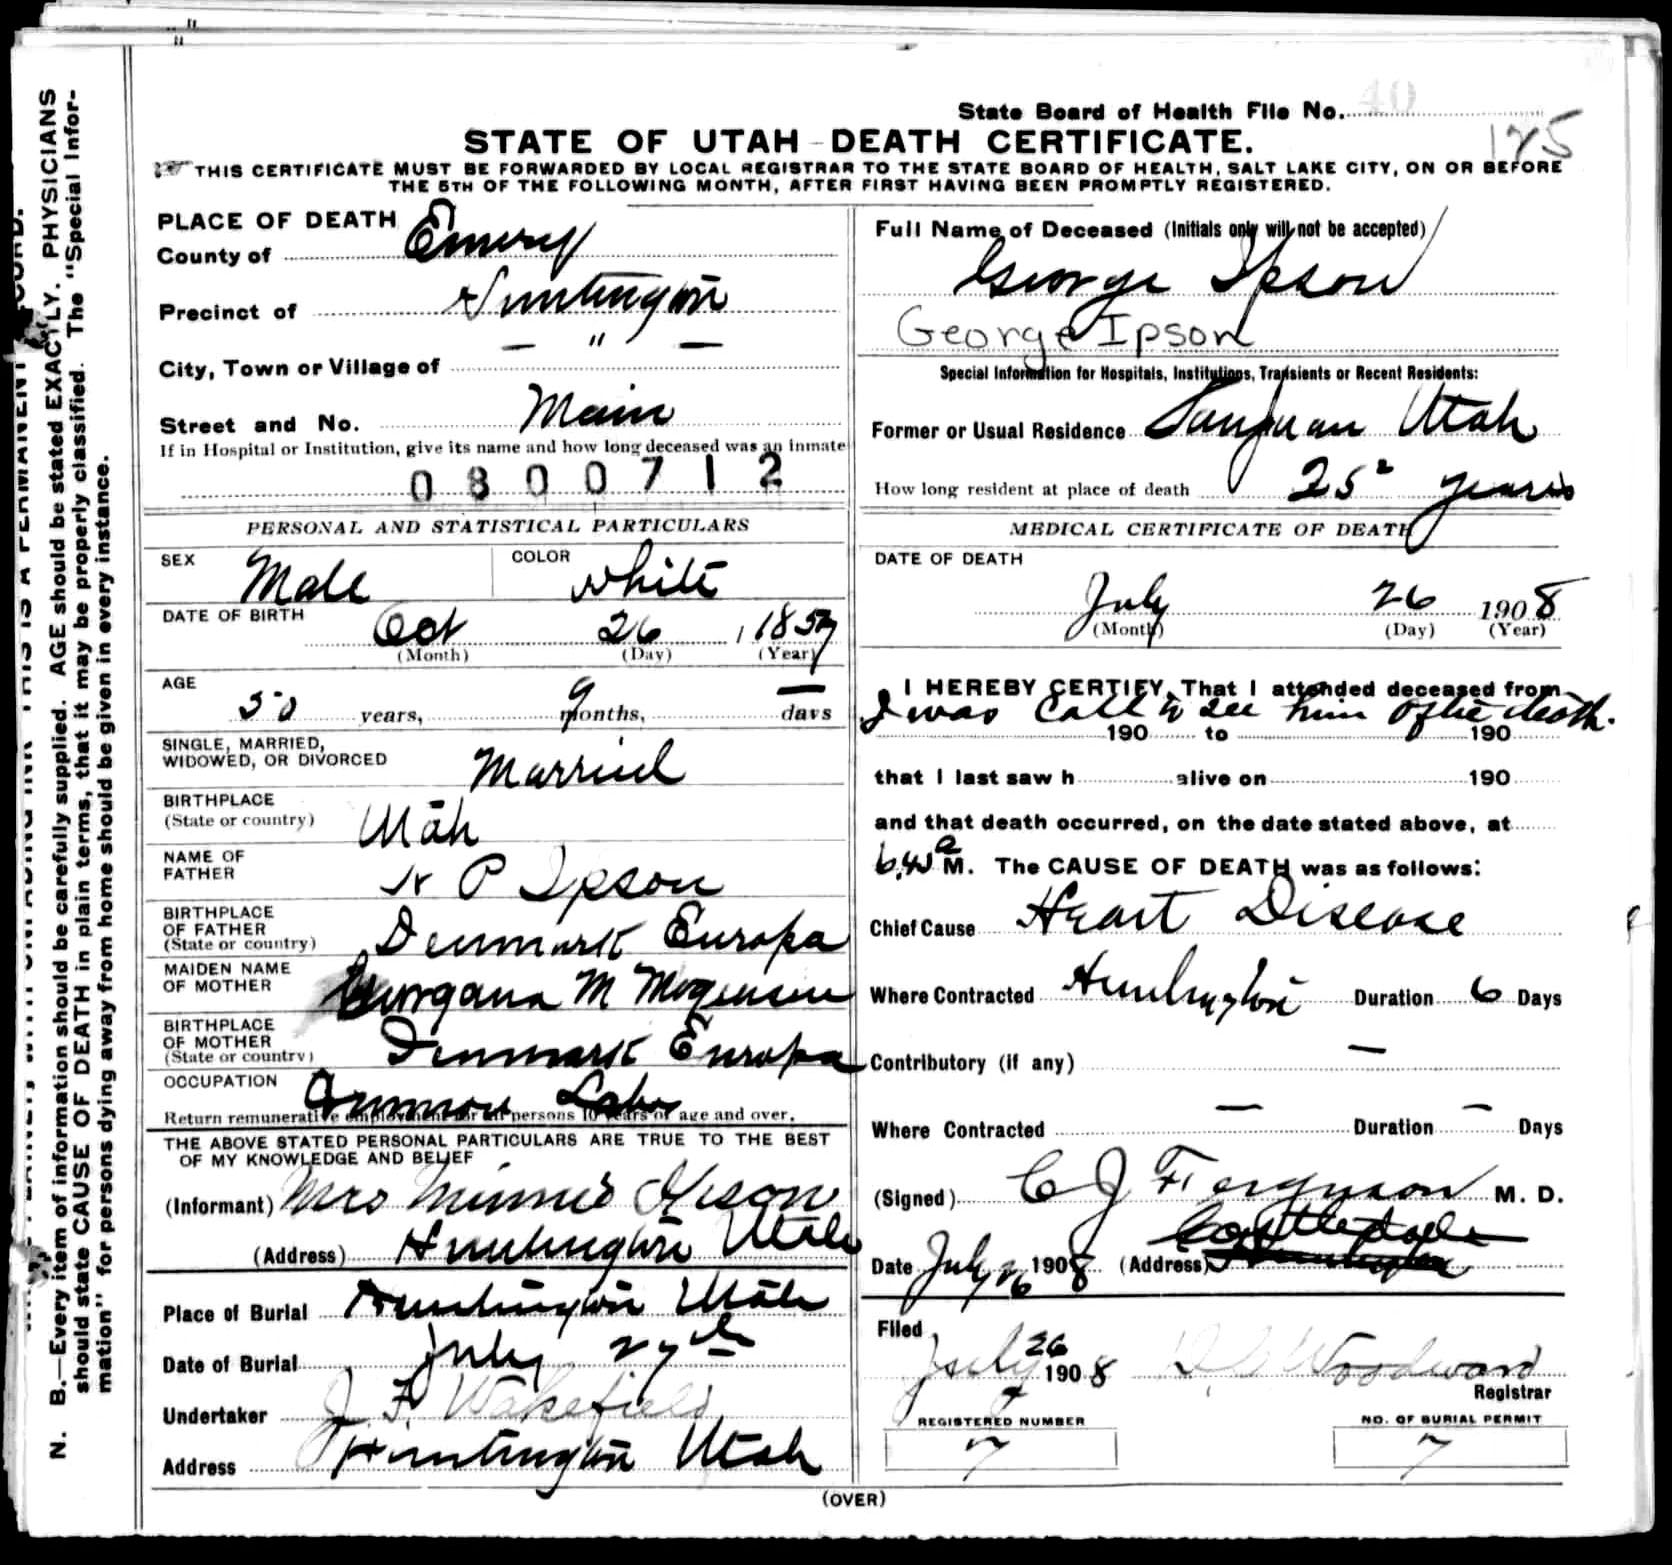 State Board of Health File No. 40
175
STATE OF UTAH-DEATH CERTIFICATE.
THIS CERTIFICATE MUST BE FORWARDED BY LOCAL REGISTRAR TO THE STATE BOARD OF HEALTH, SALT LAKE CITY, ON OR BEFORE
THE 5TH OF THE FOLLOWING MONTH, AFTER FIRST HAVING BEEN PROMPTLY REGISTERED.
PLACE OF DEATH
County of Emery
Precinct of Huntington
City, Town or Village of — " —
Street and No. Main
If in Hospital or Institution, give its name and how long deceased was an inmate
0800712
PERSONAL AND STATISTICAL PARTICULARS
SEX Male COLOR white
DATE OF BIRTH Oct 26, 1857
(Month) (Day) (Year)
AGE
50 years, 9 months, — days
SINGLE, MARRIED,
WIDOWED, OR DIVORCED Married
BIRTHPLACE
(State or country) Utah
NAME OF
FATHER N P Ipson
BIRTHPLACE
OF FATHER
(State or country) Denmark Europa
MAIDEN NAME
OF MOTHER Georgana M Mogensen
BIRTHPLACE
OF MOTHER
(State or country) Denmark Europa
OCCUPATION Common Labor
Return remunerative employment for all persons 10 years of age and over.
THE ABOVE STATED PERSONAL PARTICULARS ARE TRUE TO THE BEST
OF MY KNOWLEDGE AND BELIEF
(Informant) Mrs Minnie Ipson
(Address) Huntington Utah
Place of Burial Huntington Utah
Date of Burial July 27th
Undertaker J. F. Wakefield
Address Huntington Utah
Full Name of Deceased (Initials only will not be accepted)
George Ipson
George Ipson
Special Information for Hospitals, Institutions, Transients or Recent Residents:
Former or Usual Residence Utah
How long resident at place of death 25 years
MEDICAL CERTIFICATE OF DEATH
DATE OF DEATH
July 26 1908
(Month) (Day) (Year)
I HEREBY CERTIFY, That I attended deceased from
I was Call to see him after death.
190 to 190
that I last saw h alive on 190
and that death occurred, on the date stated above, at
a M. The CAUSE OF DEATH was as follows:
Chief Cause Heart Disease
Where Contracted Huntington Duration 6 Days
Contributory (if any) —
Where Contracted — Duration — Days
(Signed) C J Ferguson M. D.
Castledale
Date July 26 1908 (Address) Huntington
Filed
July 26 1908 Woodward
Registrar
REGISTERED NUMBER
7
NO. OF BURIAL PERMIT
7
(OVER)
N. B.—Every item of information should be carefully supplied. AGE should be stated EXACTLY. PHYSICIANS
should state CAUSE OF DEATH in plain terms, that it may be properly classified. The "Special Infor-
mation" for persons dying away from home should be given in every instance.